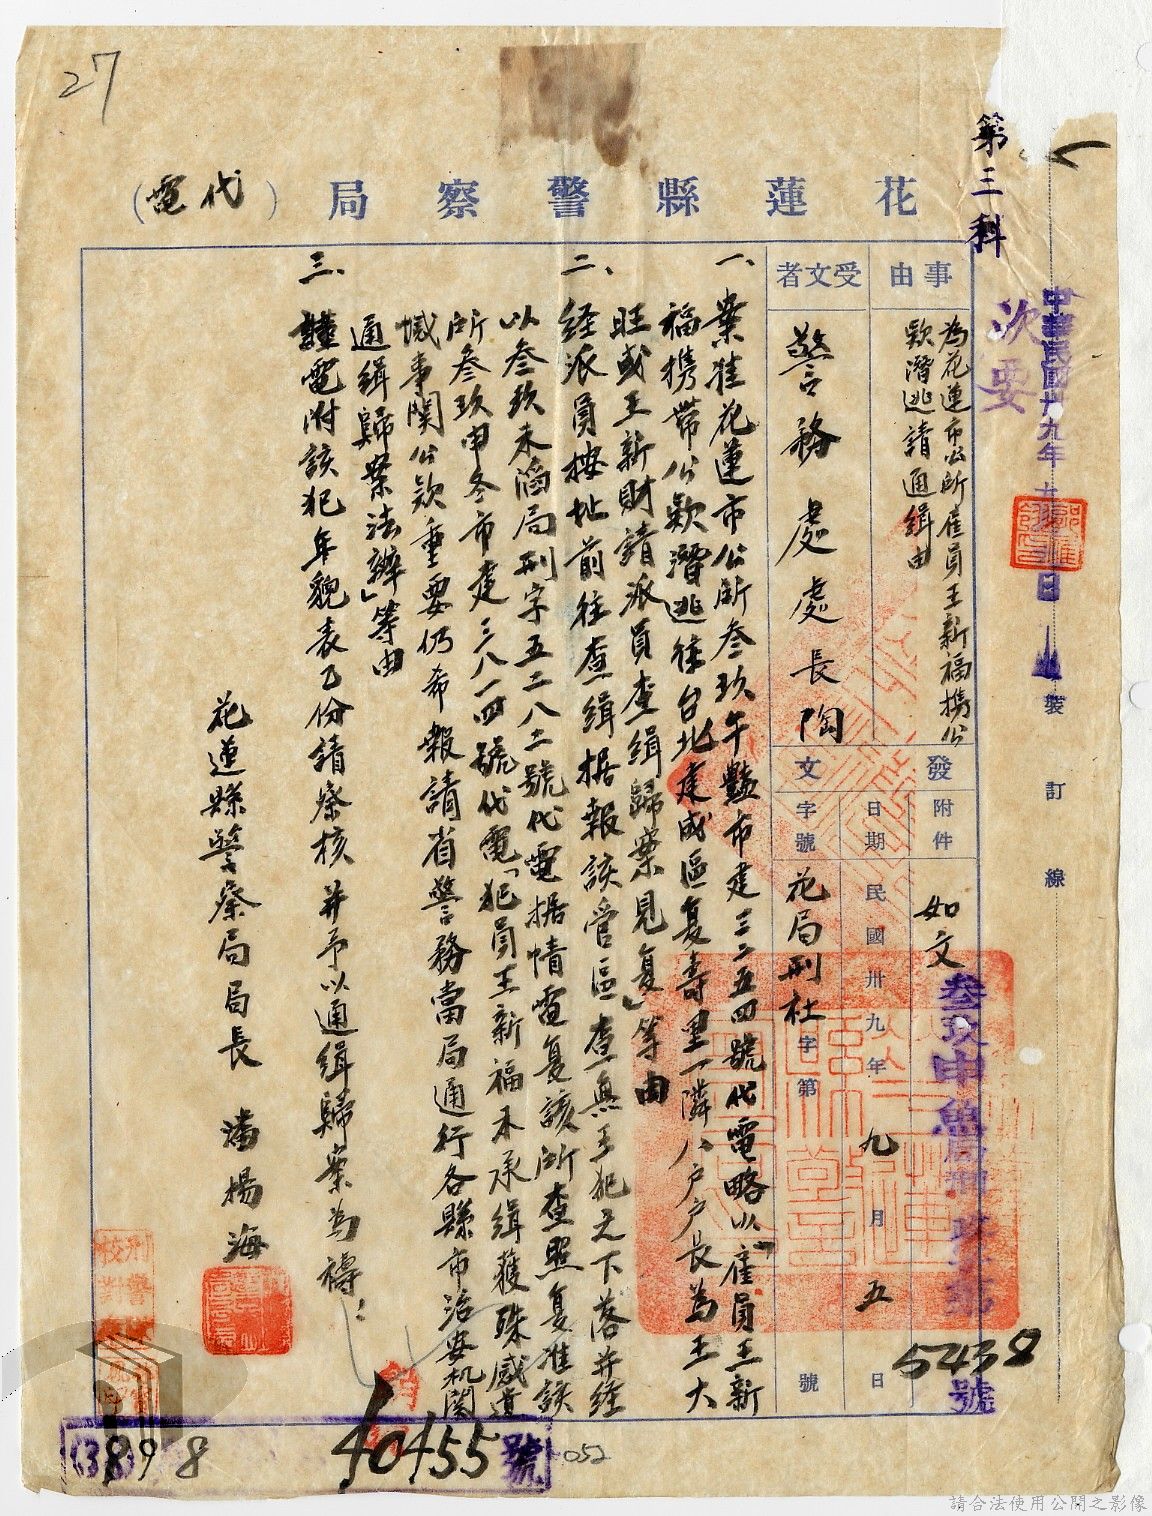 27
第三科
花蓮縣警察局（代電）
中華民國卅九年
日
裝訂線
次要
事由
為花蓮市公所雇員王新福攜公
款潛逃請通緝由
受文者
警務處處長陶
發文
附件
如文
日期
民國卅九年九月五日
字號
花局刑杜字第
號
叁玖申魚局刑
5438
號
一、案准花蓮市公所叁玖午豔市建三二五四號代電略以「雇員王新
福攜帶公款潛逃往台北建成區复壽里一隣八户户長為王大
旺或王新財請派員查緝歸案見复」等由
二、経派員按址前往查缉据報該管區查無王犯之下落并経
以叁玖未滔局刑字五二八二號代電据情電复該所查照复准該
所叁玖申冬市建三八一四號代電「犯員王新福未承緝獲殊感遺
憾事関公款重要仍希報請省警務當局通行各縣市治安机関
通缉歸案法辦」等由
三、謹電附該犯年貌表乙份請察核并予以通缉歸案為禱：
花蓮縣警察局局長 潘楊海
校對
898
40455號
052
請合法使用公開之影像